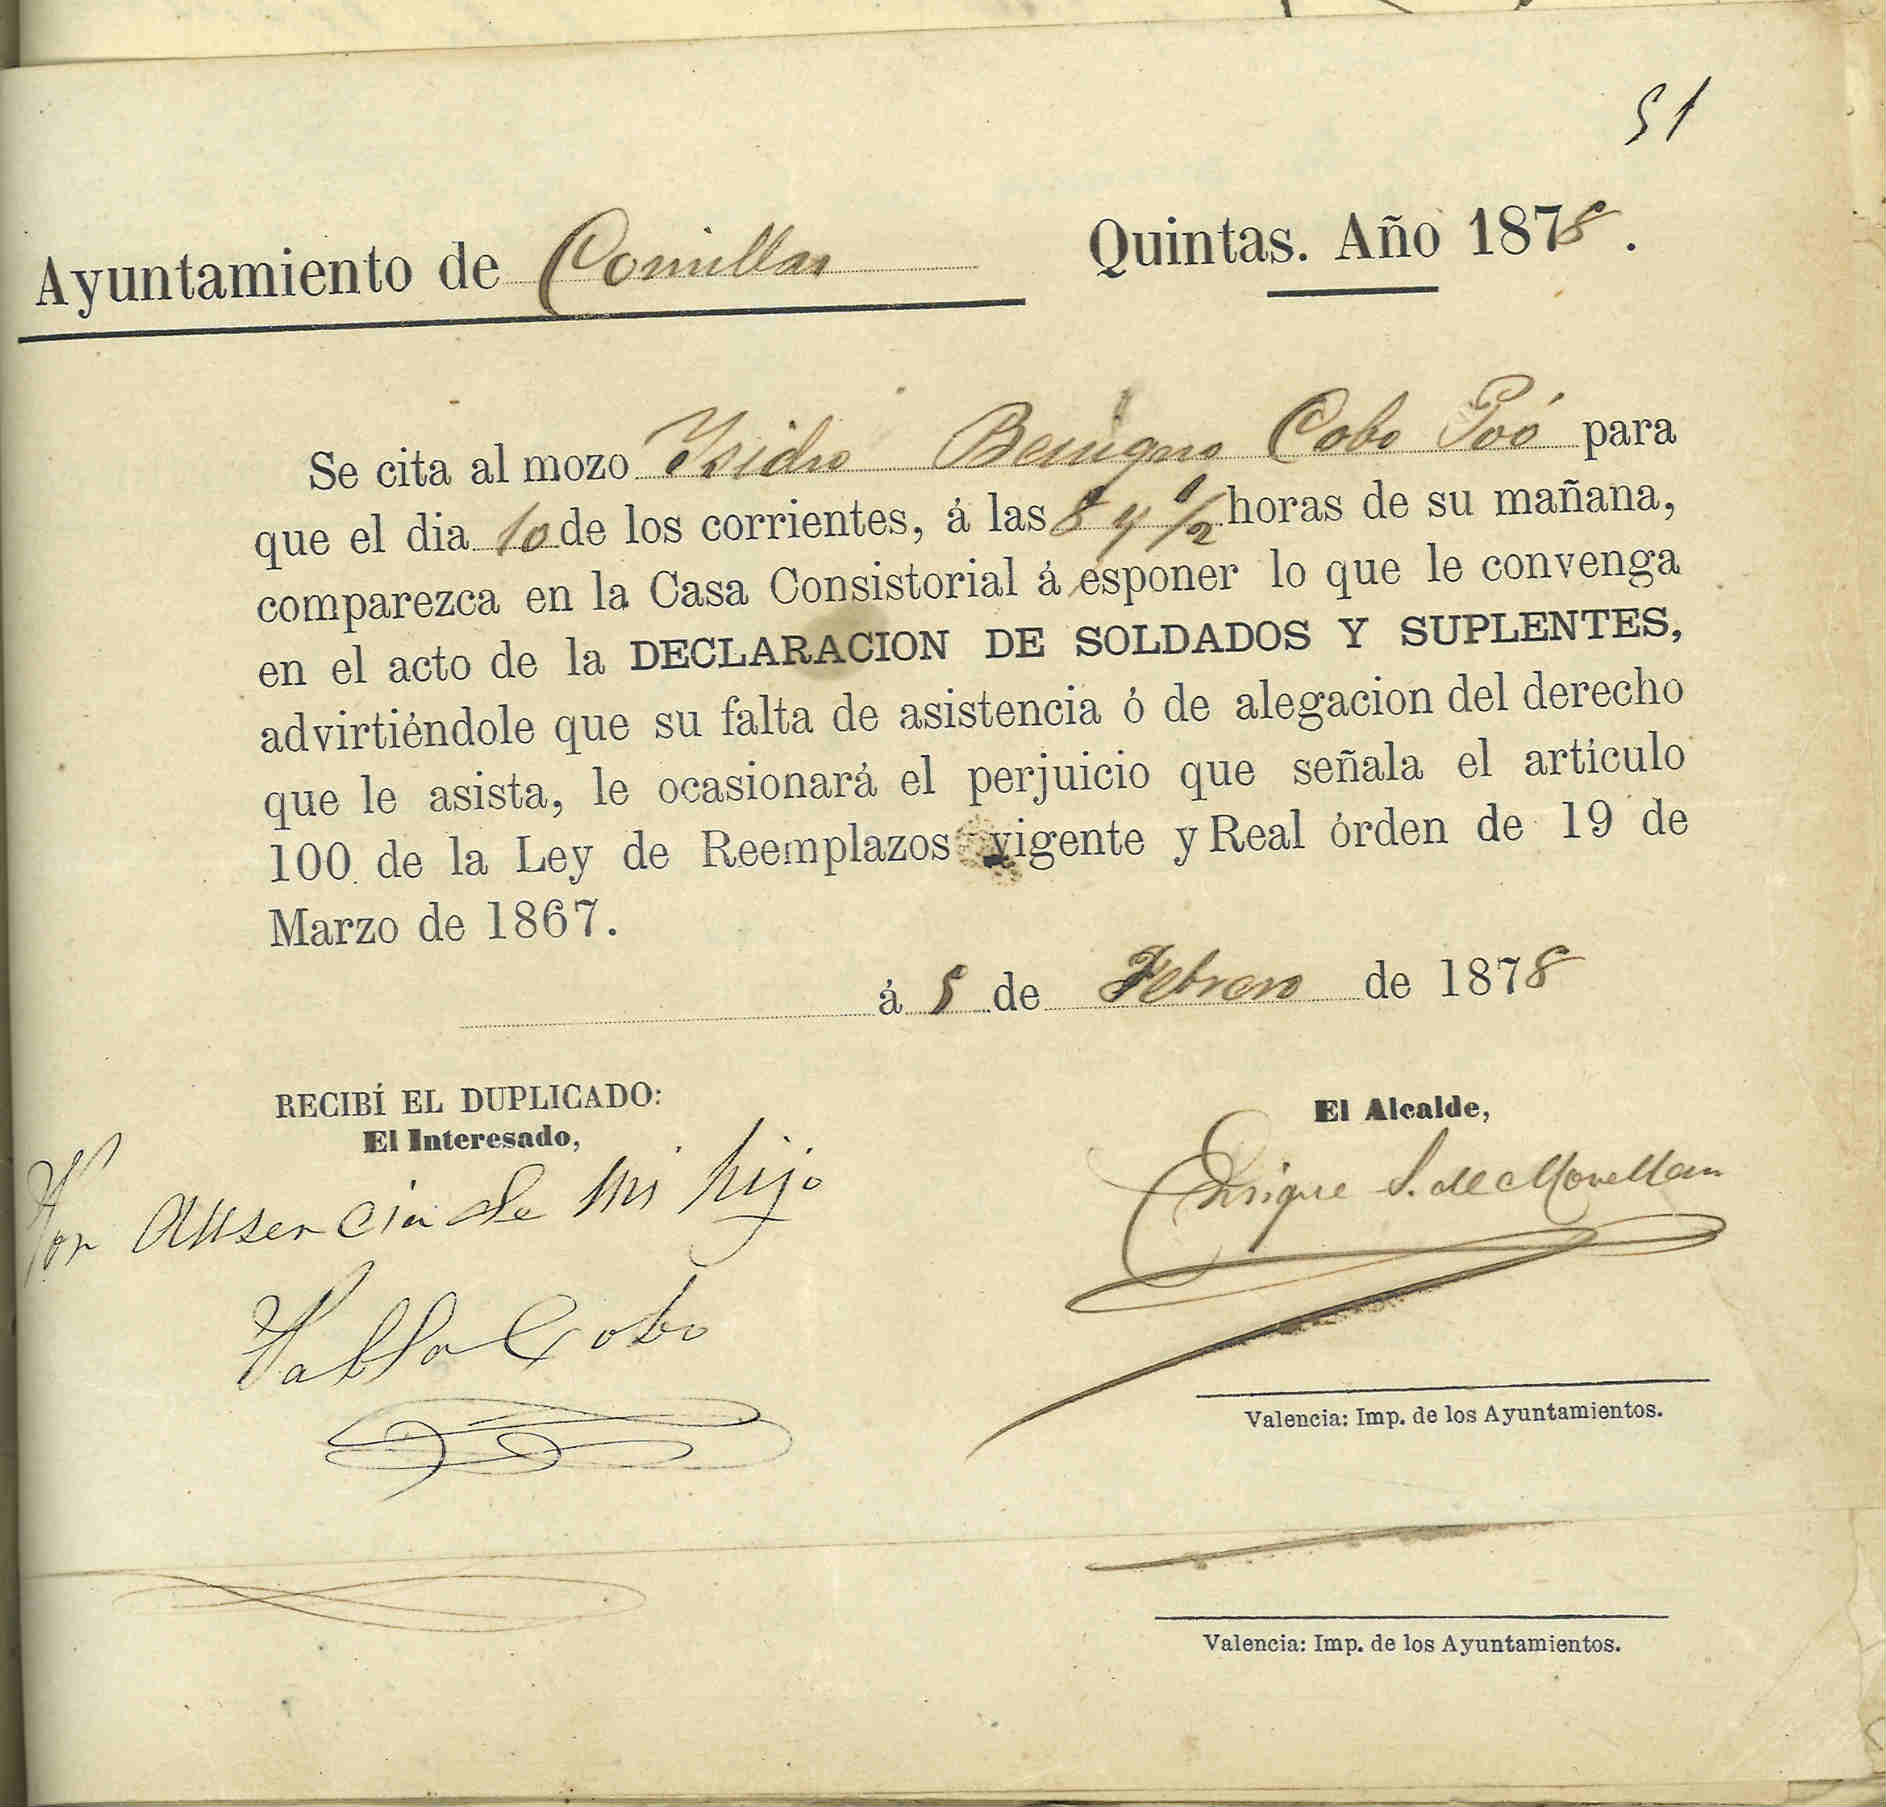 51
Ayuntamiento de Comillas Quintas. Año 1878.
Se cita al mozo Ysidro Benigno Cobo Poó para
que el dia 10 de los corrientes, á las 8 y 1/2 horas de su mañana,
comparezca en la Casa Consistorial á esponer lo que le convenga
en el acto de la DECLARACION DE SOLDADOS Y SUPLENTES,
advirtiéndole que su falta de asistencia ó de alegacion del derecho
que le asista, le ocasionará el perjuicio que señala el artículo
100 de la Ley de Reemplazos vigente y Real órden de 19 de
Marzo de 1867.
á 5 de Febrero de 1878
RECIBÍ EL DUPLICADO:
El Interesado,
Por ausencia de mi hijo
Pablo Cobo
El Alcalde,
Enrique S. de Movellan
Valencia: Imp. de los Ayuntamientos.
Valencia: Imp. de los Ayuntamientos.